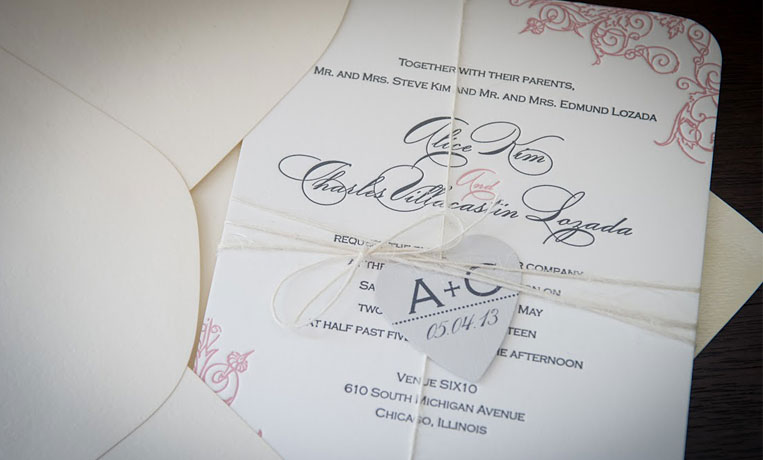 Together with their parents,
Mr. and Mrs. Steve Kim and Mr. and Mrs. Edmund Lozada
Alice Kim
And
Charles Lozada
company
on
May
at half past five
the afternoon
A+C
05.04.13
Venue SIX10
610 South Michigan Avenue
Chicago, Illinois